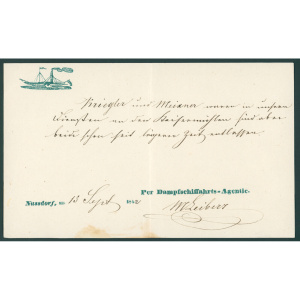 Kriegler und Meixner waren in unseren
Diensten an den Kaisermühlen sind aber
beide schon seit längerer Zeit entlassen
Per Dampfschiffahrts-Agentie.
Nussdorf, am 13 Sept 185